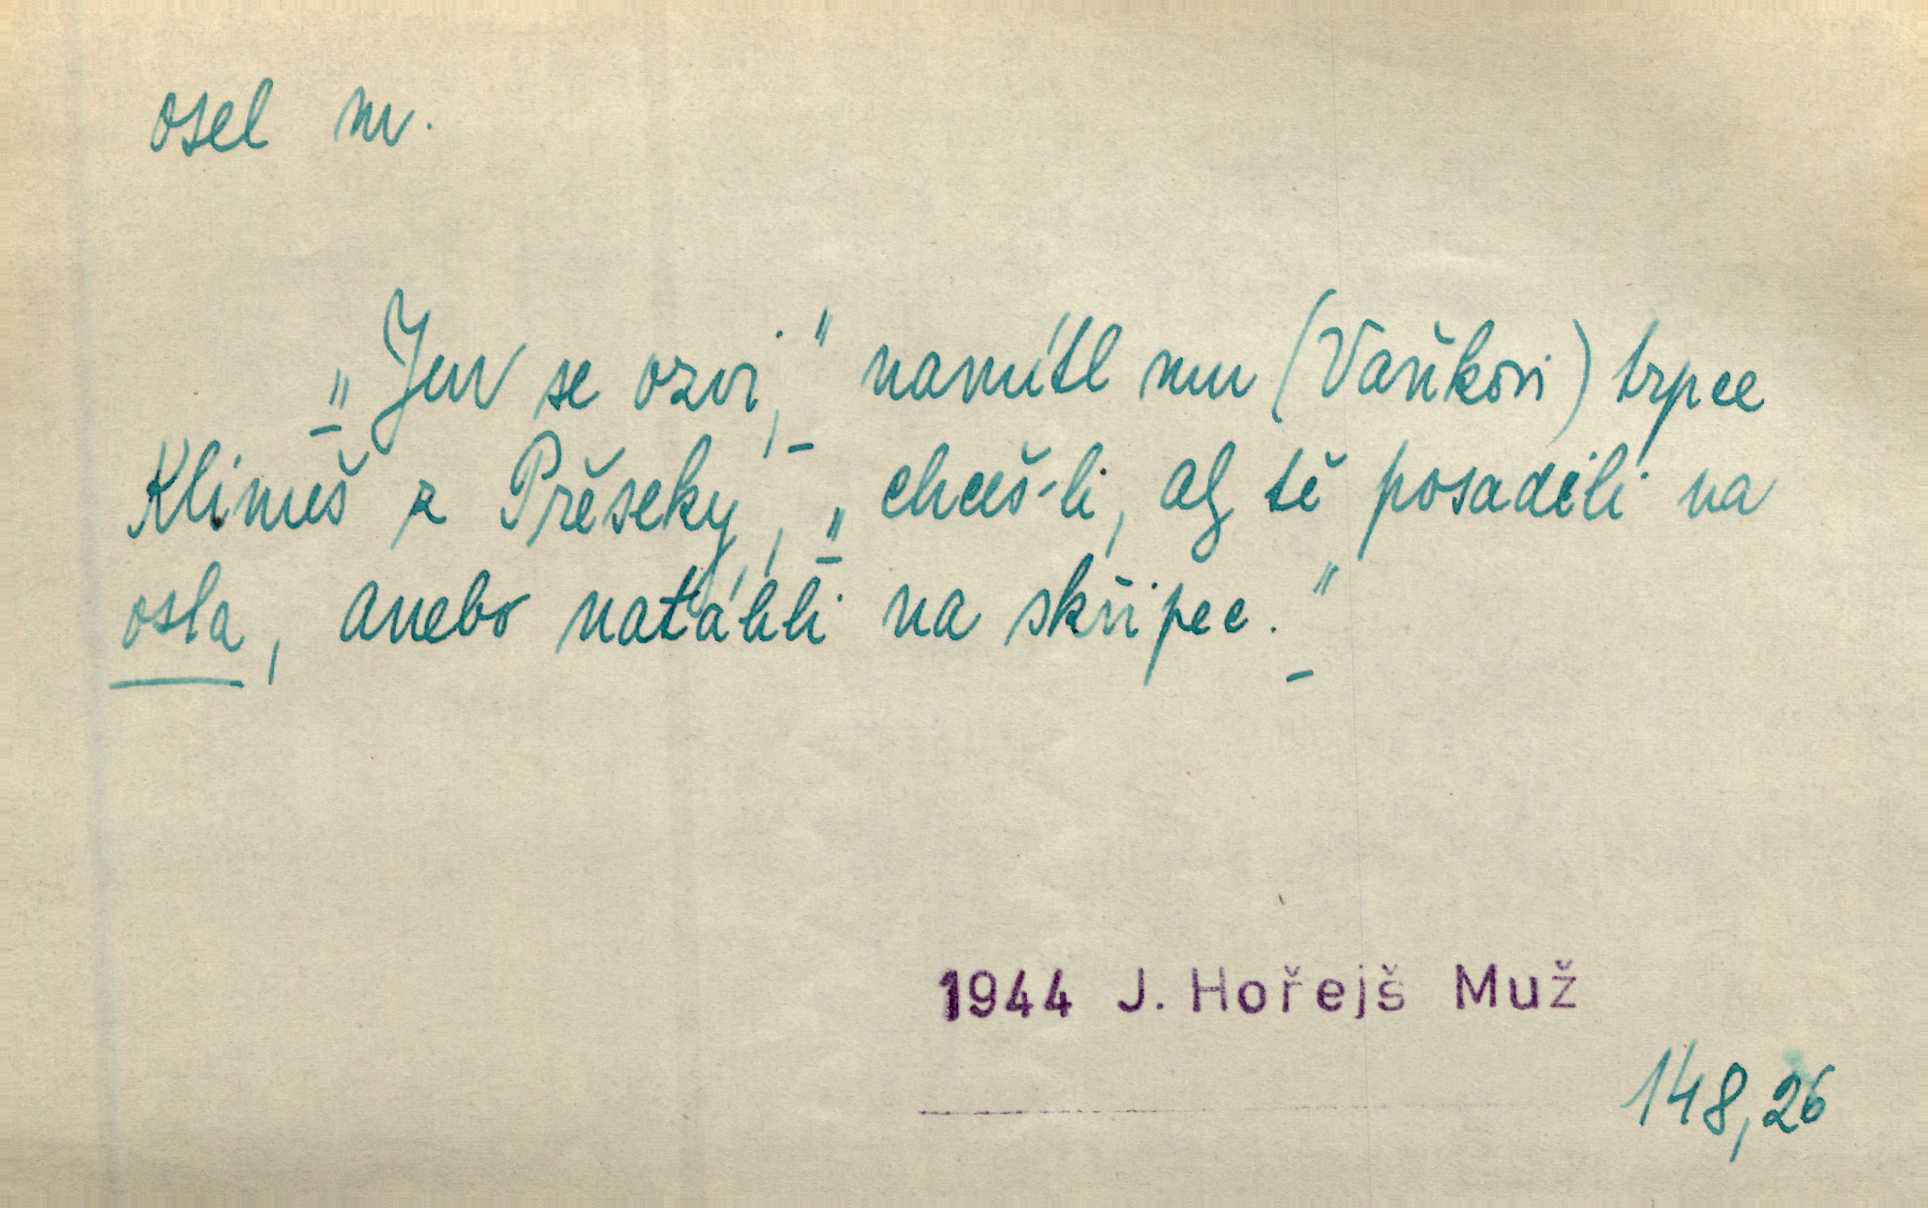 osel m.
„Jen se ozvi,“ namítl mu (Vaňkovi) trpce
Klimeš z Přěseky, „chceš-li, aby tě posadili na
osla, anebo natáhli na skřipec.“
1944 J. Hořejš Muž
148,26